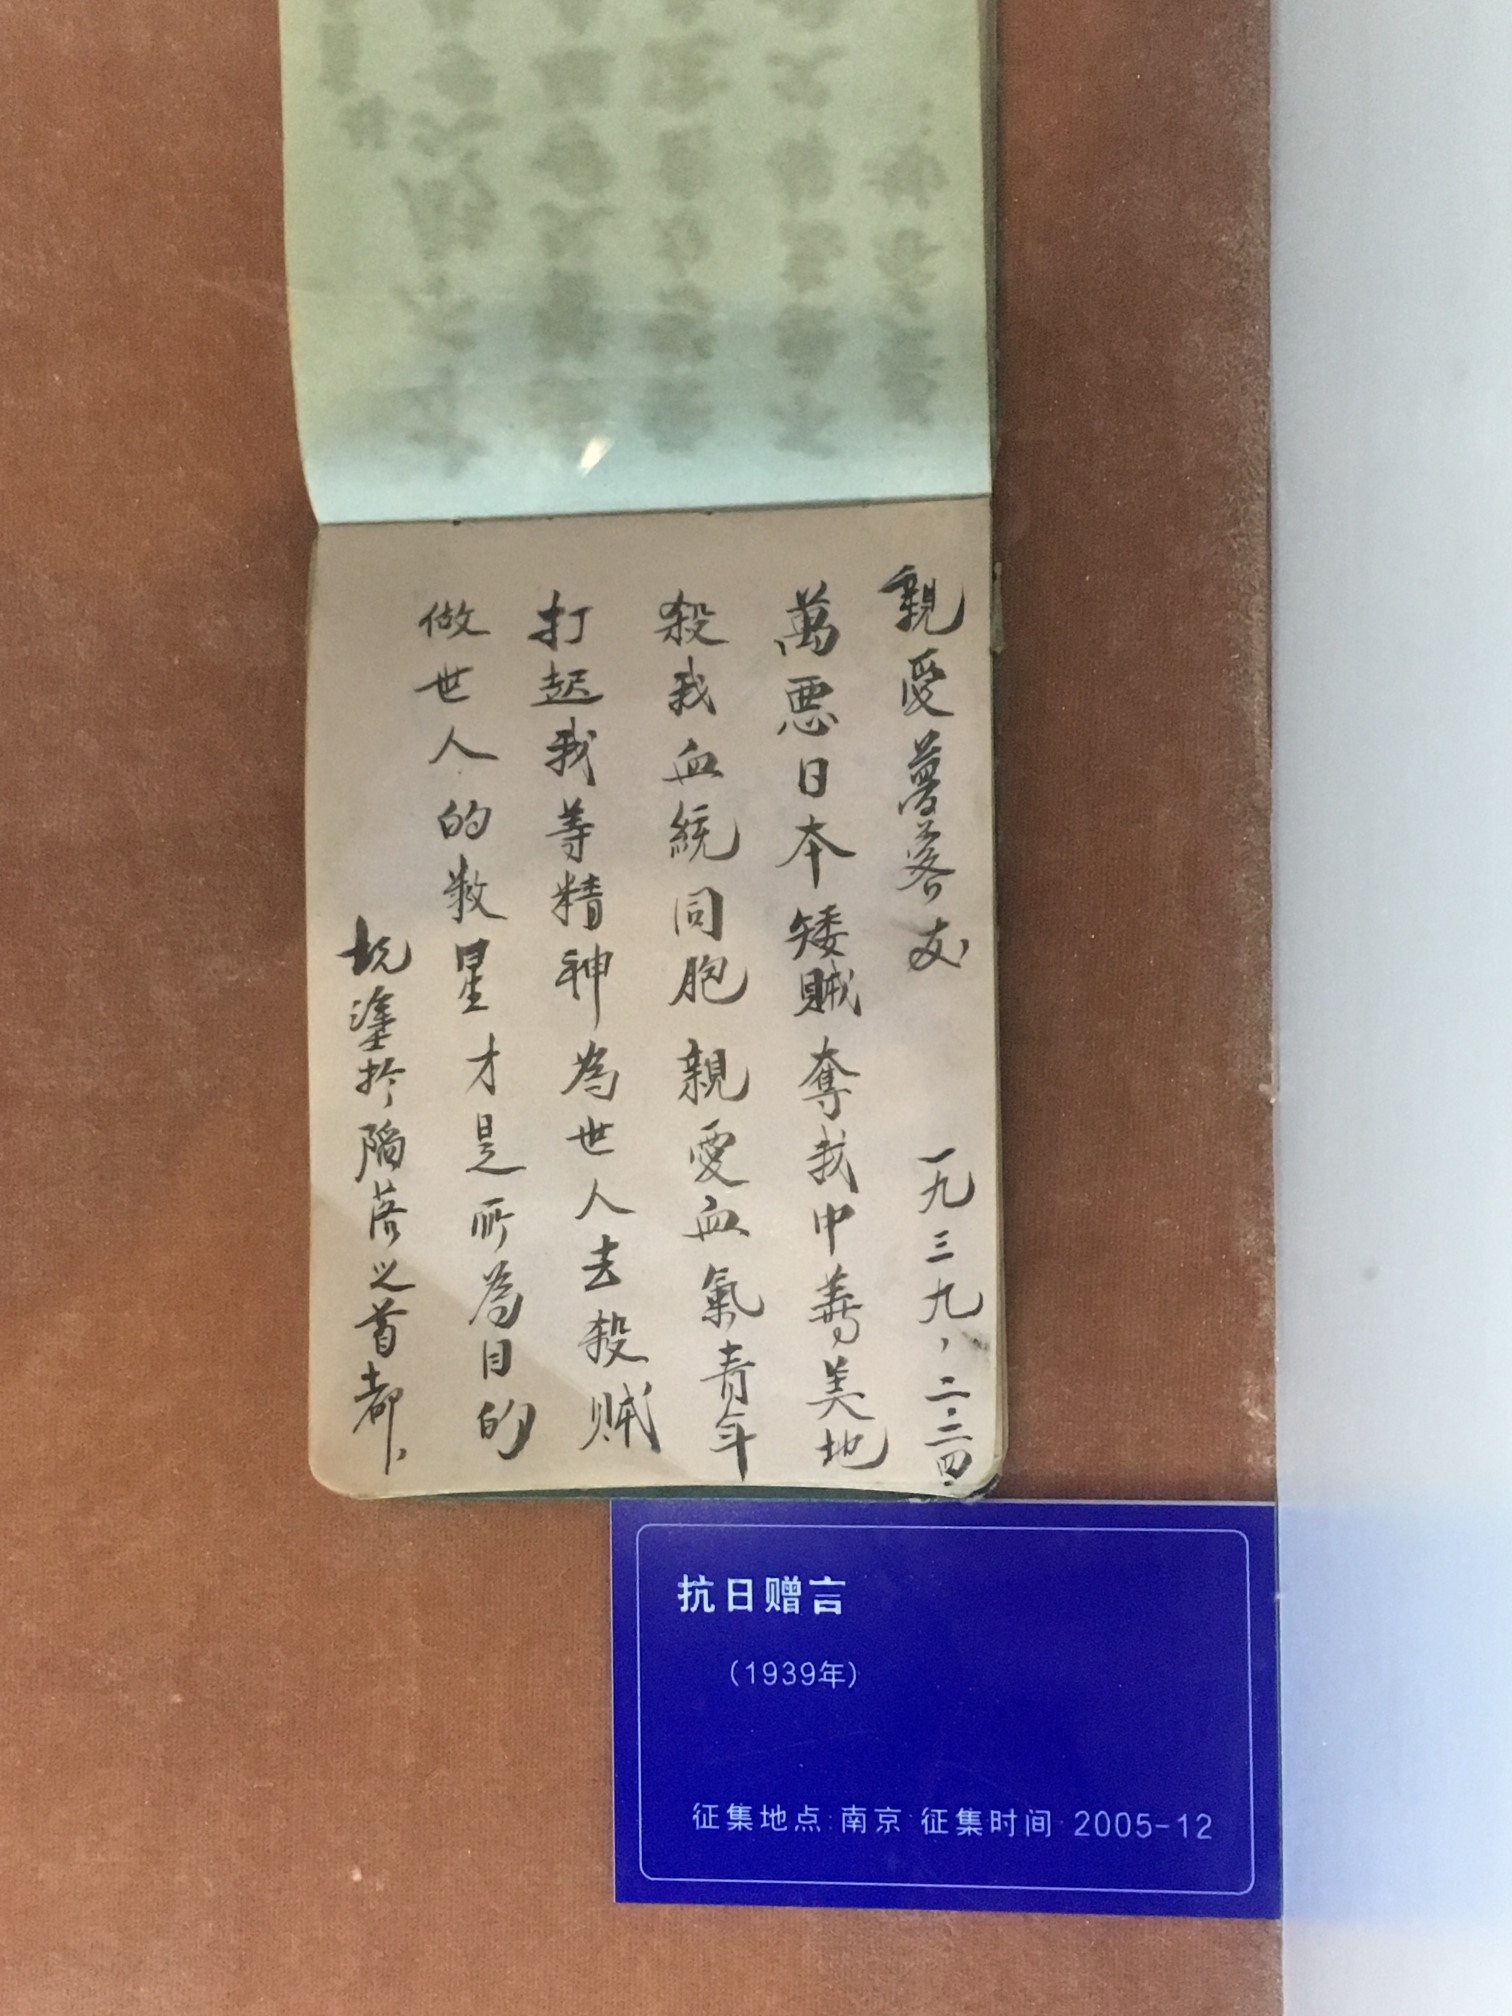 親愛夢落友 一九三九，二.二四.
萬惡日本矮賊奪我中華美地
殺我血統同胞親愛血氣青年
打起我等精神為世人去殺賊
做世人的救星才是所為目的
塗於陷落之首都、
抗日赠言
（1939年）
征集地点：南京 征集时间：2005-12